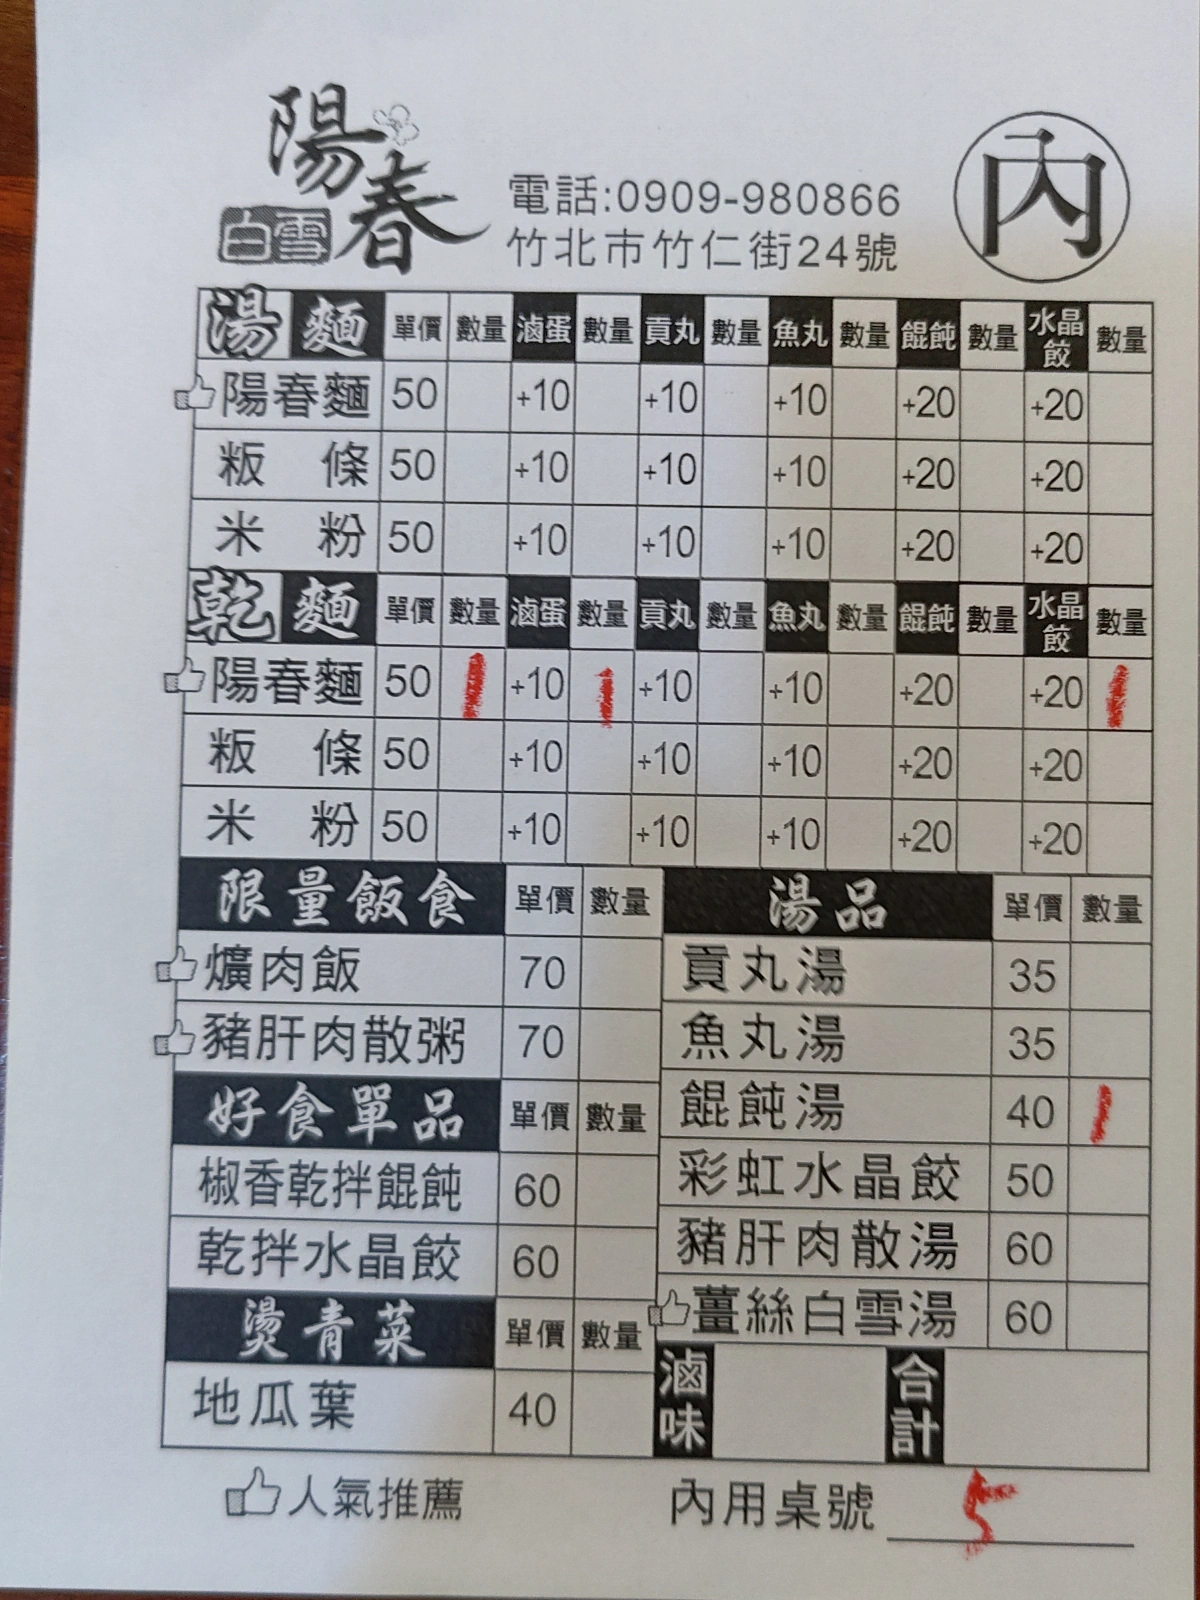 陽春
白雪
電話:0909-980866
竹北市竹仁街24號
內
湯麵 單價 數量 滷蛋 數量 貢丸 數量 魚丸 數量 餛飩 數量 水晶餃 數量
陽春麵 50 +10 +10 +10 +20 +20
粄條 50 +10 +10 +10 +20 +20
米粉 50 +10 +10 +10 +20 +20
乾麵 單價 數量 滷蛋 數量 貢丸 數量 魚丸 數量 餛飩 數量 水晶餃 數量
陽春麵 50 1 +10 1 +10 +10 +20 +20 1
粄條 50 +10 +10 +10 +20 +20
米粉 50 +10 +10 +10 +20 +20
限量飯食 單價 數量
爌肉飯 70
豬肝肉散粥 70
好食單品 單價 數量
椒香乾拌餛飩 60
乾拌水晶餃 60
燙青菜 單價 數量
地瓜葉 40
湯品 單價 數量
貢丸湯 35
魚丸湯 35
餛飩湯 40 1
彩虹水晶餃 50
豬肝肉散湯 60
薑絲白雪湯 60
滷味 合計
人氣推薦
內用桌號 5